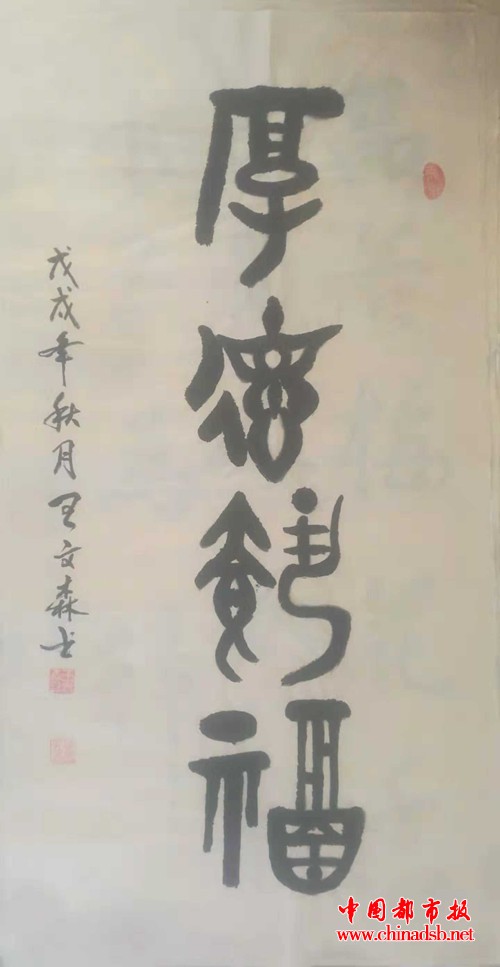 厚德载福
戊戌年秋月王文森书
中国都市报
www.chinadsb.net